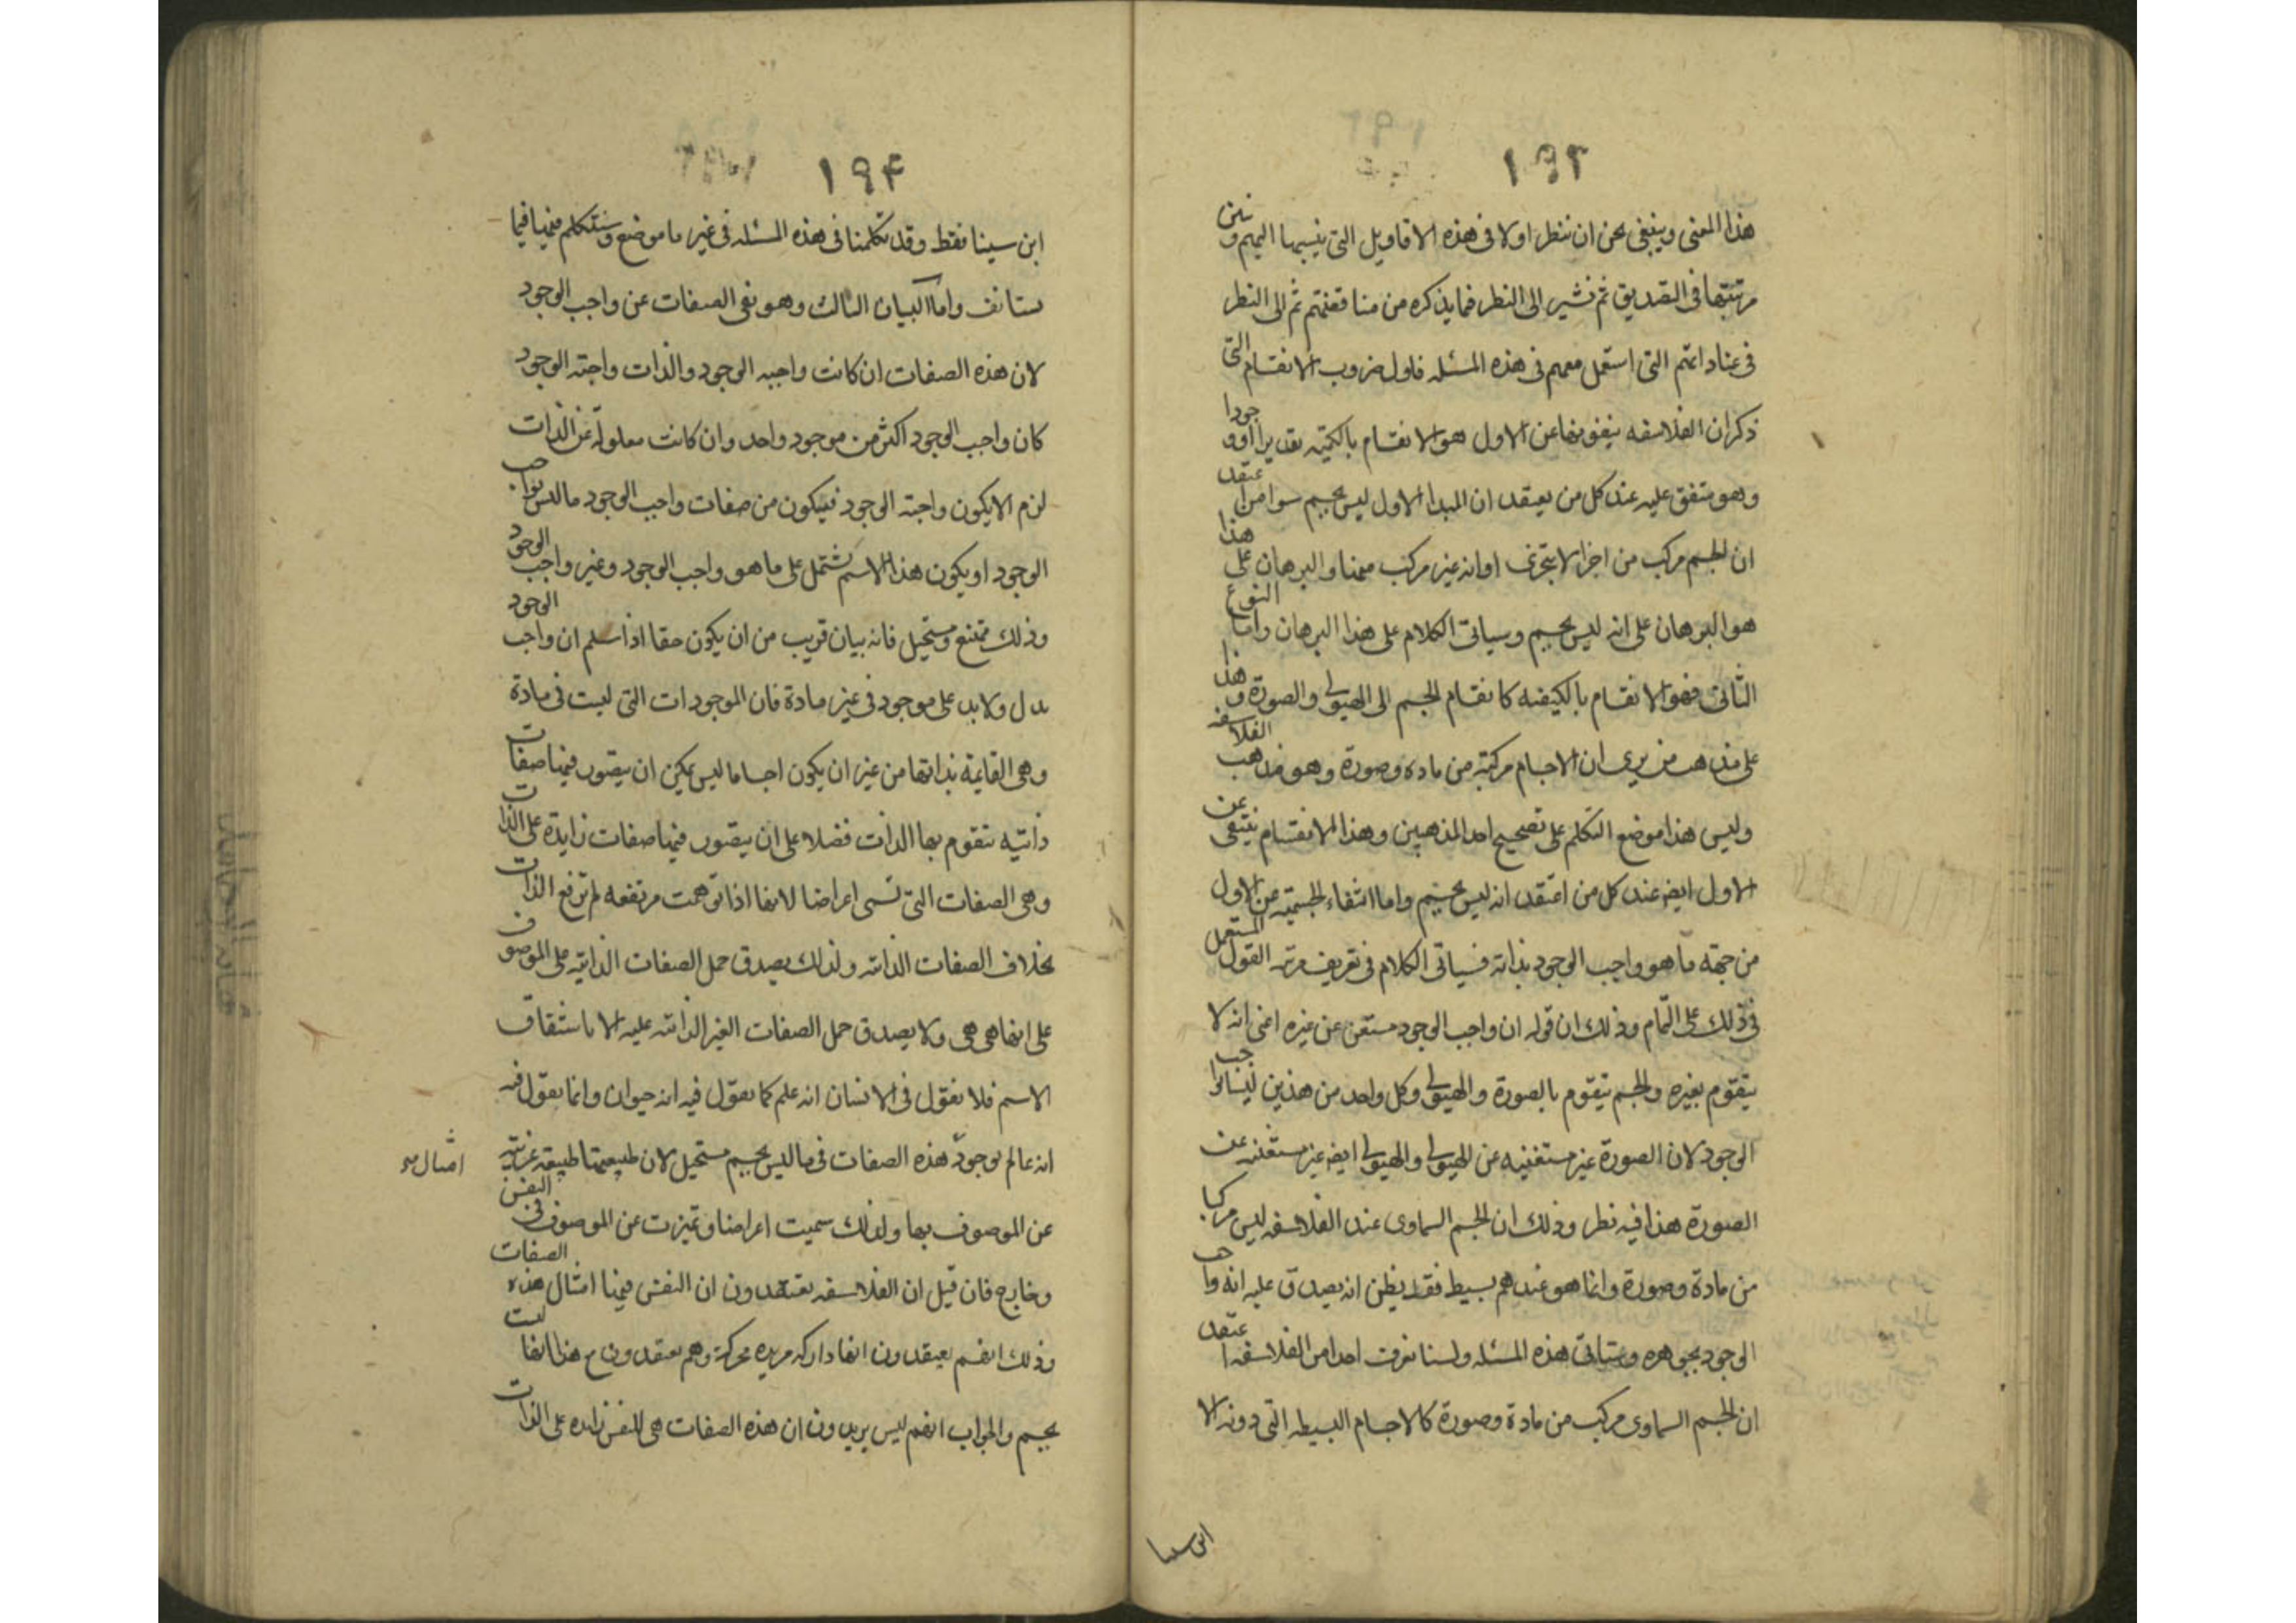 ١٩٣
هذا المعنى وينبغى نحن ان ننظر اولا فى هذه الاقاويل التى ينسبها اليهم ونبين
مرتبتها فى التصديق ثم نشير الى النظر فما يذكره من مناقضتهم ثم الى النظر
فى عناداتهم التى استعمل معهم فى هذه المسئله فاول ضروب الانقسام التى
ذكر ان الفلاسفه ينفونها عن الاول هو الانقسام بالكميه تقديرا او وجودا
وهو متفق عليه عند كل من يعتقد ان المبدا الاول ليس بجسم سوا من اعتقد
ان الجسم مركب من اجزا لا يتجزى او انه غير مركب منها والبرهان على هذا
هو البرهان على انه ليس بجسم وسياتى الكلام على هذا البرهان واما النوع
الثانى فهو الانقسام بالكيفيه كانقسام الجسم الى الهيولى والصورة وهذا
على مذهب من يرى ان الاجسام مركبة من ماده وصورة وهو مذهب الفلاسفه
وليس هذا موضع التكلم على تصحيح احد المذهبين وهذا الانقسام ينتفى عن
الاول ايضه عند كل من اعتقد انه ليس بجسم واما انتفاء الجسميه عن الاول
من جهة ما هو واجب الوجود بذاته فسياتى الكلام فى تعريف مرتبه القول المستعمل
فى ذلك على التمام وذلك ان قوله ان واجب الوجود مستغن عن غيره اعنى انه لا
يتقوم بغيره والجسم يتقوم بالصورة والهيولى وكل واحد من هذين ليسا واجب
الوجود لان الصورة غير مستغنيه عن الهيولى والهيولى ايضه غير مستغنيه عن
الصورة هذا فيه نظر وذلك ان الجسم السماوى عند الفلاسفه ليس مركبا
من مادة وصورة وانما هو عندهم بسيط فقد يظن انه يصدق عليه انه واجب
الوجود بجوهره وستاتى هذه المسئله ولسنا نعرف احدا من الفلاسفه اعتقد
ان الجسم السماوى مركب من مادة وصورة كالاجسام البسيطه التى دونه الا
ابن سينا
١٩۴
ابن سينا فقط وقد تكلمنا فى هذه المسئله فى غير ما موضع وسنتكلم فيها فيما
يستانف واما البيان الثالث وهو نفى الصفات عن واجب الوجود
لان هذه الصفات ان كانت واجبه الوجود والذات واجبة الوجود
كان واجب الوجود اكثر من موجود واحد وان كانت معلولة عن الذات
لزم الا يكون واجبة الوجود فيكون من صفات واجب الوجود ما ليس بواجب
الوجود او يكون هذا الاسم يشتمل على ما هو واجب الوجود وغير واجب الوجود
وذلك ممتنع ومستحيل فانه بيان قريب من ان يكون حقا اذا سلم ان واجب الوجود
يدل ولا بد على موجود فى غير مادة فان الموجودات التى ليست فى مادة
وهى القايمة بذاتها من غير ان يكون اجساما ليس يمكن ان يتصور فيها صفات
ذاتيه تتقوم بها الذات فضلا على ان يتصور فيها صفات زايدة على الذات
وهى الصفات التى تسمى اعراضا لانها اذا توهمت مرتفعه لم ترتفع الذات
بخلاف الصفات الذاتيه ولذلك يصدق حمل الصفات الذاتيه على الموصوف
على انها هى هى ولا يصدق حمل الصفات الغير الذاتيه عليه الا باشتقاق
الاسم فلا نقول فى الانسان انه علم كما نقول فيه انه حيوان وانما نقول فيه
انه عالم فوجود هذه الصفات فى ما ليس بجسم مستحيل لان طبيعتها طبيعه غريبه
امثال
عن الموصوف بها ولذلك سميت اعراضا وتميزت عن الموصوف فى النفس
وخارج فان قيل ان الفلاسفه يعتقدون ان النفس فيها امثال هذه الصفات
وذلك انهم يعتقدون انها داركه مريده محركة وهم يعتقدون مع هذا انها ليست
بجسم والجواب انهم ليس يريدون ان هذه الصفات هى للنفس زايده على الذات